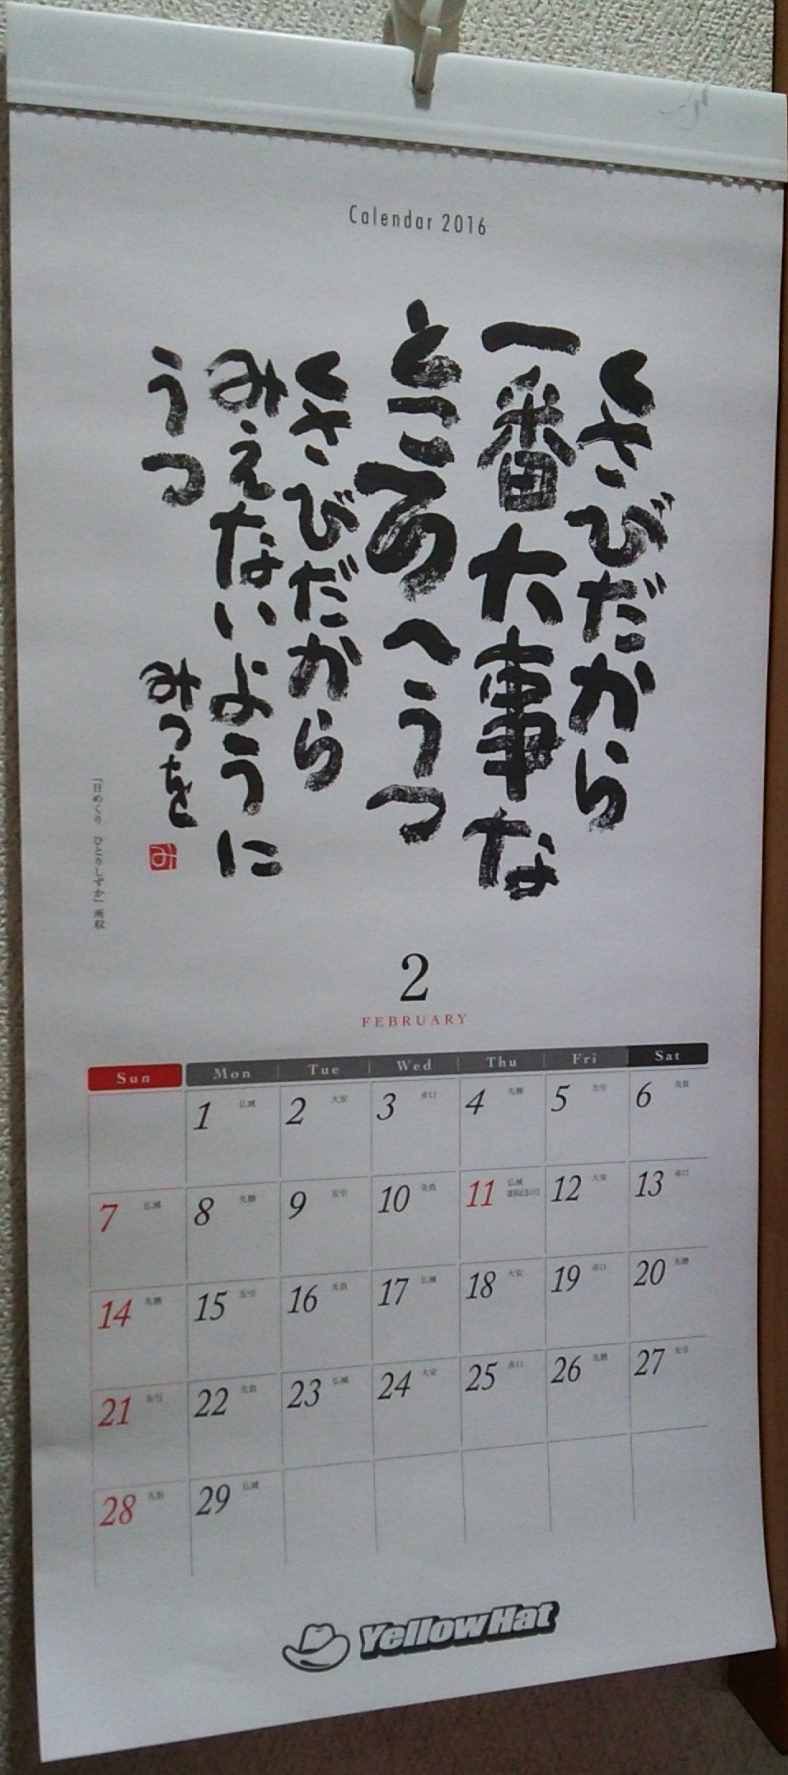 Calendar 2016
くさびだから
一番大事な
ところへうつ
くさびだから
みえないように
うつ
みつを
み
「日めくり ひとりしずか」所収
2
FEBRUARY
Sun Mon Tue Wed Thu Fri Sat
1 仏滅 2 大安 3 赤口 4 先勝 5 友引 6 先負
7 仏滅 8 先勝 9 友引 10 先負 11 仏滅 12 大安 13 赤口
14 先勝 15 友引 16 先負 17 仏滅 18 大安 19 赤口 20 先勝
21 友引 22 先負 23 仏滅 24 大安 25 赤口 26 先勝 27 友引
28 先負 29 仏滅
YellowHat